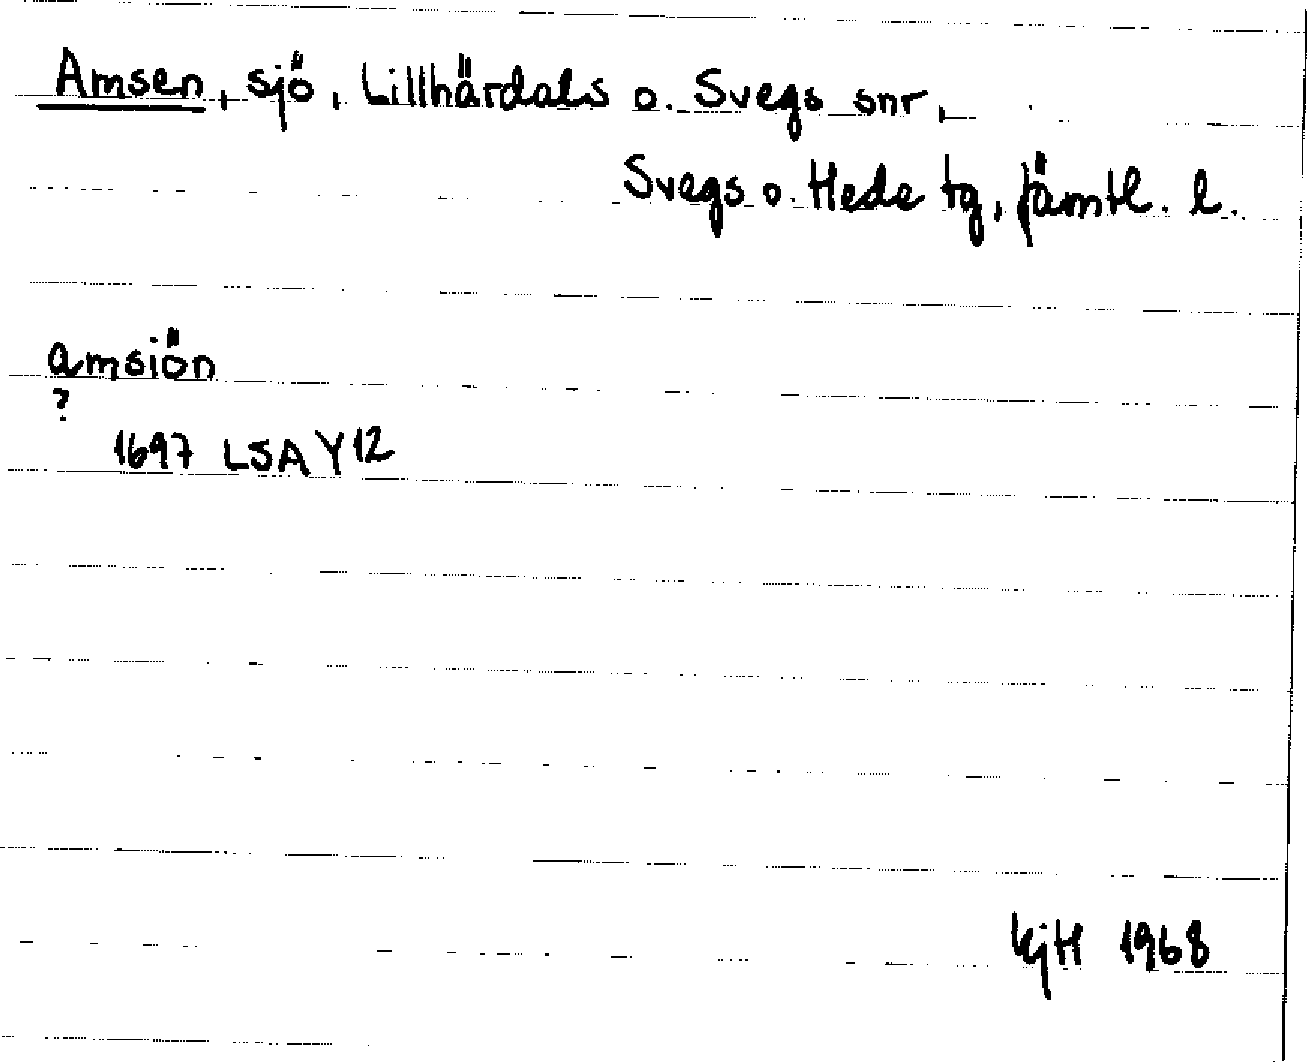 Amsen, sjö, Lillhärdals o. Svegs snr,
Svegs o. Hede tg, Jämtl. l.
amsiön
?
1697 LSA Y12
KjH 1968